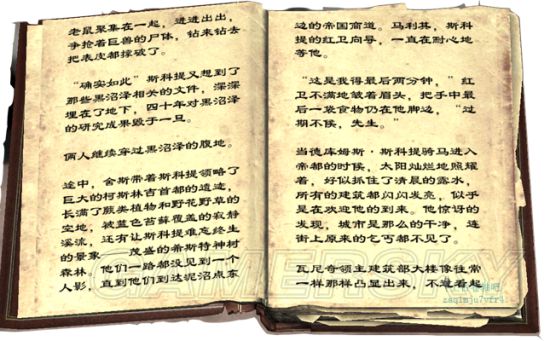 老鼠聚集在一起，进进出出，
争抢着巨兽的尸体，钻来钻去
把表皮都撑破了。
“确实如此”斯科提又想到了
那些黑沼泽相关的文件，深深
埋在了地下，四十年对黑沼泽
的研究成果毁于一旦。
俩人继续穿过黑沼泽的腹地。
途中，舍斯带着斯科提领略了
巨大的柯斯林吉首都的遗迹，
长满了蕨类植物和野花野草的
空地，被蓝色苔藓覆盖的寂静
溪流，还有让斯科提难忘终生
的景象——茂盛的希斯特神树
森林。他们一路都没见到一个
人影，直到他们到达泥沼点东
边的帝国商道。马利其，斯科
提的红卫向导，一直在耐心地
等他。
“这是我得最后两分钟，”红
卫不满地皱着眉头，把手中最
后一袋食物仍在他脚边，“过
期不候，先生。”
当德库姆斯·斯科提骑马进入
帝都的时候，太阳灿烂地照耀
着，好似抓住了清晨的露水，
所有的建筑都闪闪发亮，似乎
是在欢迎他的到来。他惊讶的
发现，城市是那么的干净，连
街上原来的乞丐都不见了。
瓦尼奇领主建筑部大楼像往常
一样那样凸显出来，不单看起
GAMERSKY
zaqimju7vfr4